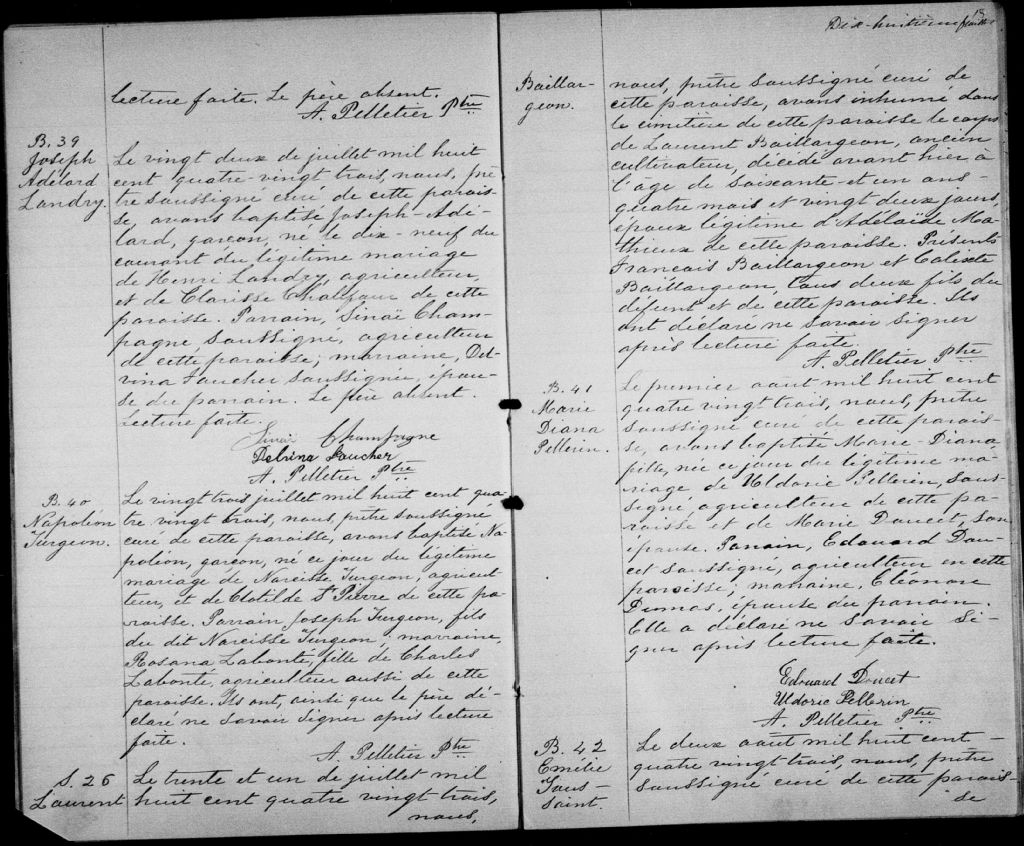 lecture faite. Le père absent.
A. Pelletier Ptre
B. 39
Joseph
Adélard
Landry.
Le vingt deux de juillet mil huit
cent quatre-vingt trois, nous, prê
tre soussigné curé de cette parois-
se, avons baptisé Joseph-Adé-
lard, garçon, né le dix-neuf du
courant du légitime mariage
de Henri Landry, agriculteur,
et de Clarisse Chalifour de cette
paroisse. Parrain, Sinaï Cham-
pagne soussigné, agriculteur
de cette paroisse; marraine, Del-
vina Faucher soussignée, épou-
se du parrain. Le père absent.
Lecture faite.
Sinaï Champagne
Delvina Faucher
A. Pelletier Ptre
B. 40
Napoléon
Turgeon.
Le vingt trois juillet mil huit cent qua
tre vingt trois, nous, prêtre soussigné
curé de cette paroisse, avons baptisé Na-
poléon, garçon, né ce jour du légitime
mariage de Narcisse Turgeon, agricul-
teur, et de Clotilde St Pierre de cette pa-
roisse. Parrain Joseph Turgeon, fils
du dit Narcisse Turgeon; marraine,
Rosana Labonté, fille de Charles
Labonté, agriculteur aussi de cette
paroisse. Ils ont, ainsi que le père dé-
claré ne savoir signer après lecture
faite.
A. Pelletier Ptre
S. 26
Laurent
Le trente et un de juillet mil
huit cent quatre vingt trois,
nous,
18
Dix-huitième feuillet
Baillar-
geon.
nous, prêtre soussigné curé de
cette paroisse, avons inhumé dans
le cimetière de cette paroisse le corps
de Laurent Baillargeon, ancien
cultivateur, décédé avant hier à
l'âge de soixante-et un ans-
quatre mois et vingt deux jours,
époux légitime d'Adélaïde Ma-
thieux de cette paroisse. Présents
François Baillargeon et Calixte
Baillargeon, tous deux fils du
défunt et de cette paroisse. Ils
ont déclaré ne savoir signer
après lecture faite.
A. Pelletier Ptre
B. 41
Marie
Diana
Pellerin.
Le premier août mil huit cent
quatre vingt trois, nous, prêtre
soussigné curé de cette parois-
se, avons baptisé Marie-Diana
fille, née ce jour du légitime ma-
riage de Uldoric Pellerin, sous-
signé, agriculteur de cette pa-
roisse et de Marie Doucet, son
épouse. Parrain, Edouard Dou-
cet soussigné, agriculteur en cette
paroisse; marraine, Eléonore
Dumas, épouse du parrain.
Elle a déclaré ne savoir si-
gner après lecture faite.
Edouard Doucet
Uldoric Pellerin
A. Pelletier Ptre
B. 42
Emélie
Tous-
saint
Le deux août mil huit cent-
quatre vingt trois, nous, prêtre
soussigné curé de cette parois-
se